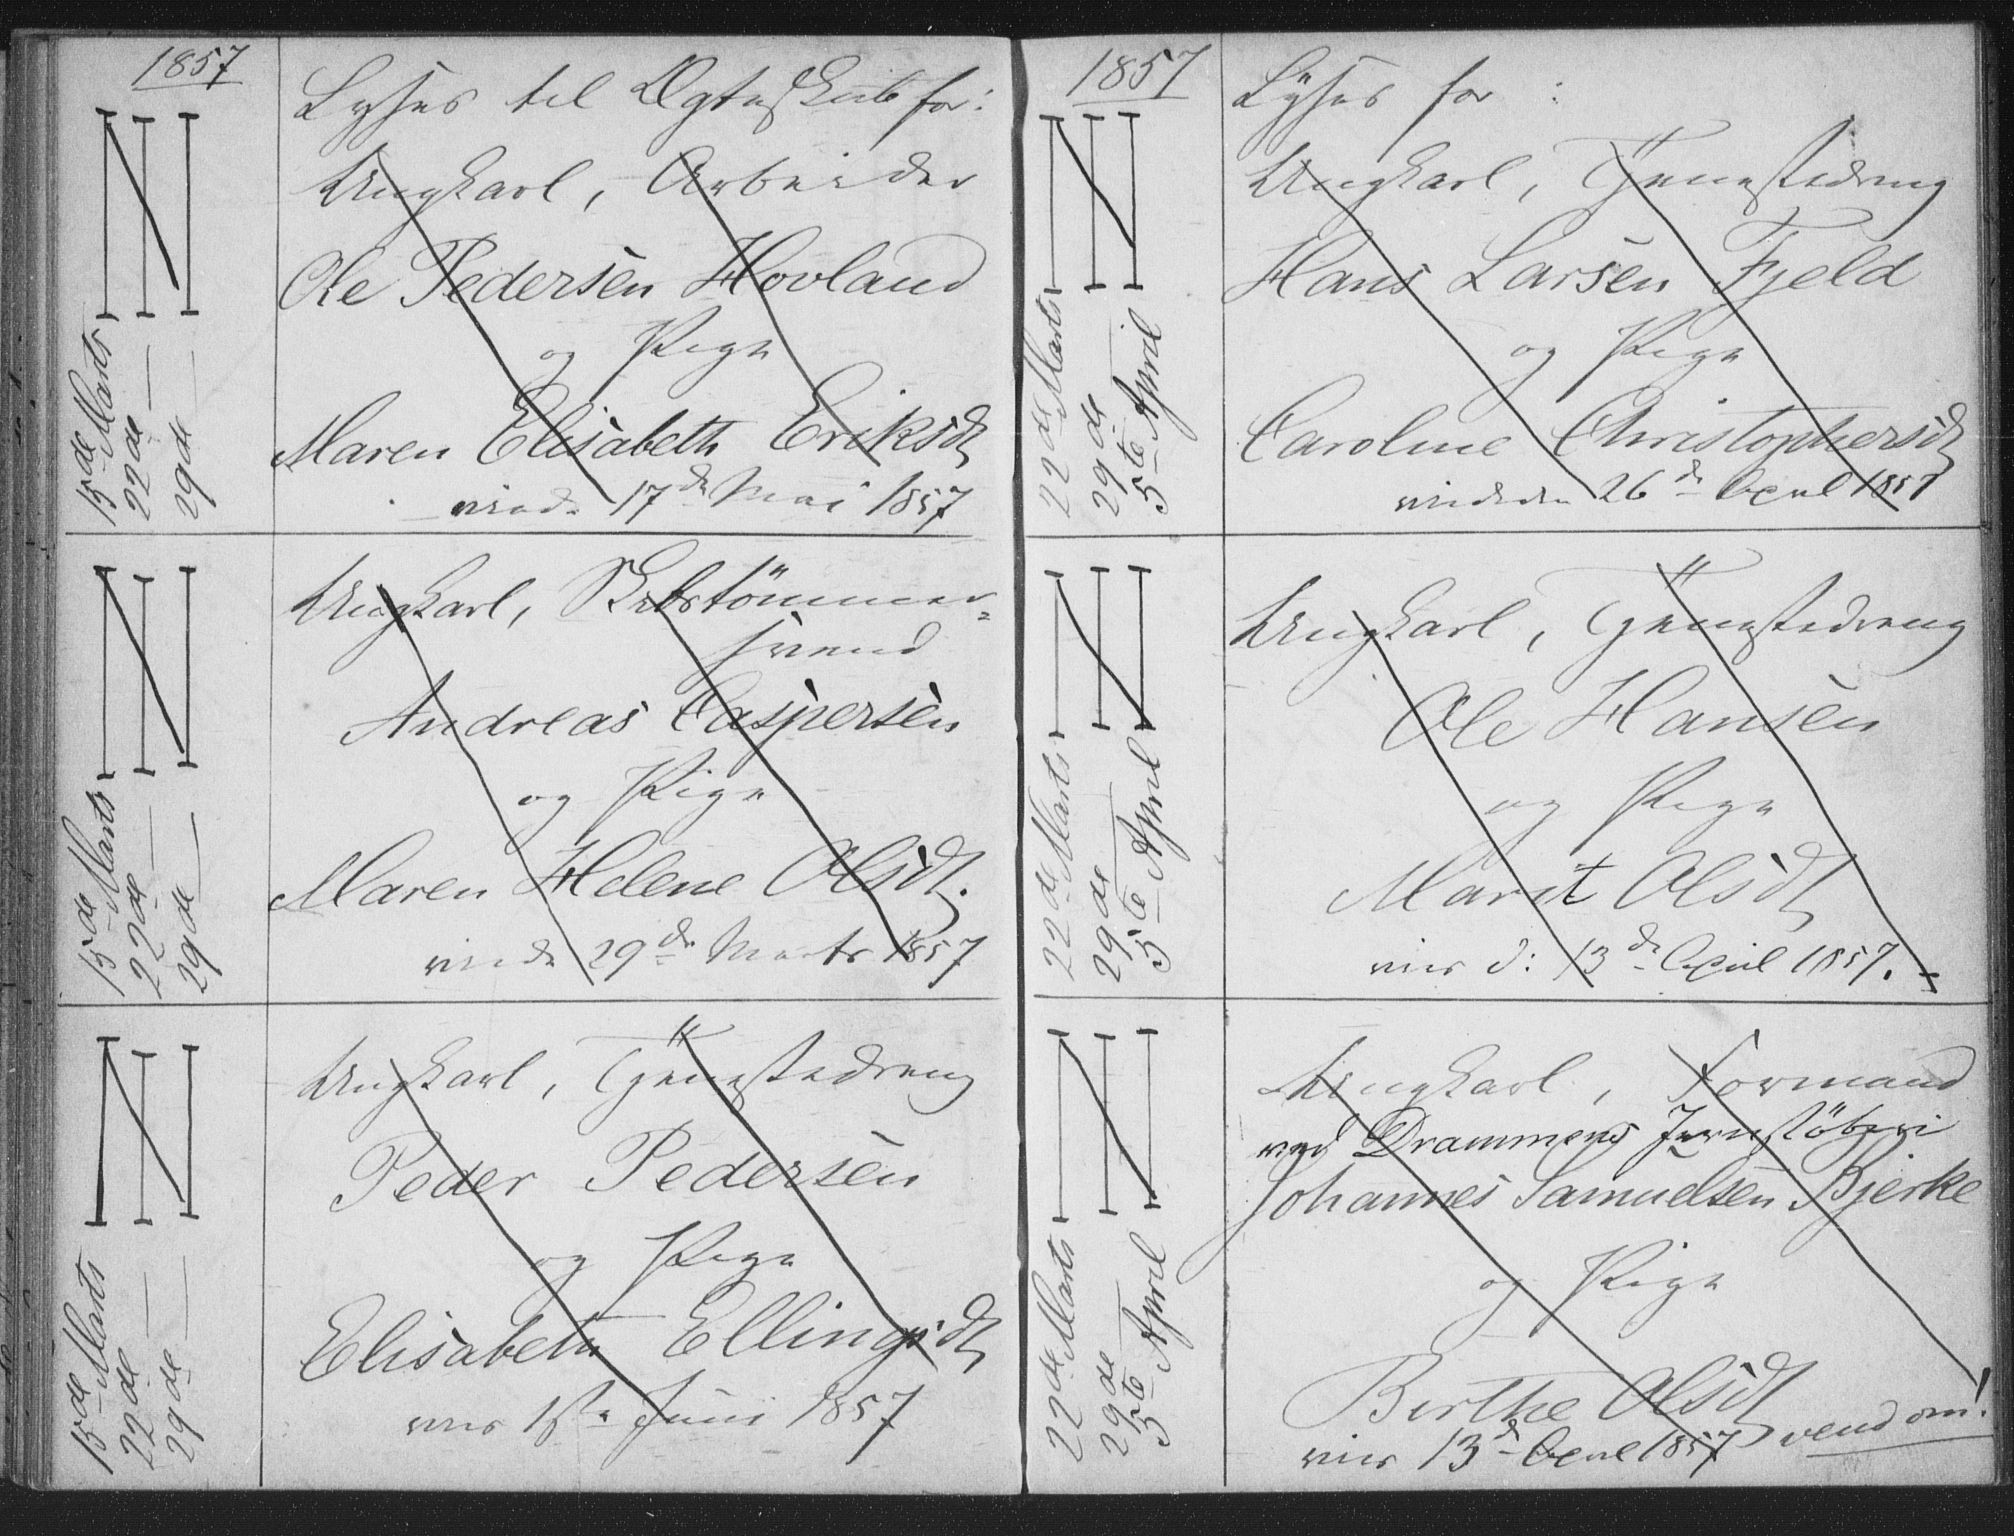 1857
Lyses til Ægteskab for:
15de Marts
22de —
29de —
Ungkarl, Arbeider
Ole Pedersen Hovland
og Pige
Maren Elisabeth Eriksdt
viede 17de Mai 1857
15de Marts
22de —
29de —
Ungkarl, Skibstömmer=
svend
Andreas Caspersen
og Pige
Maren Helene Olsdt.
viede 29de Marts 1857
15de Marts
22de —
29de —
Ungkarl, Tjenestedreng
Peder Pedersen
og Pige
Elisabeth Ellingsdt
vies 1ste Juni 1857
1857
Lyses for :
22de Marts
29de —
5te April
Ungkarl, Tjenestedreng
Hans Larsen Fjeld
og Pige
Caroline Christophersdt
26de April 1857
22de Marts
29de —
5te April
Ungkarl, Tjenestedreng
Ole Hansen
og Pige
Marit Olsdt
vies d: 13de April 1857.
22de Marts
29de —
5te April
Ungkarl, Formand
ved Drammens Jernstöberi
Johannes Samuelsen Bjerke
og Pige
Birthe Olsdt
vies 13de April 1857 vend om!